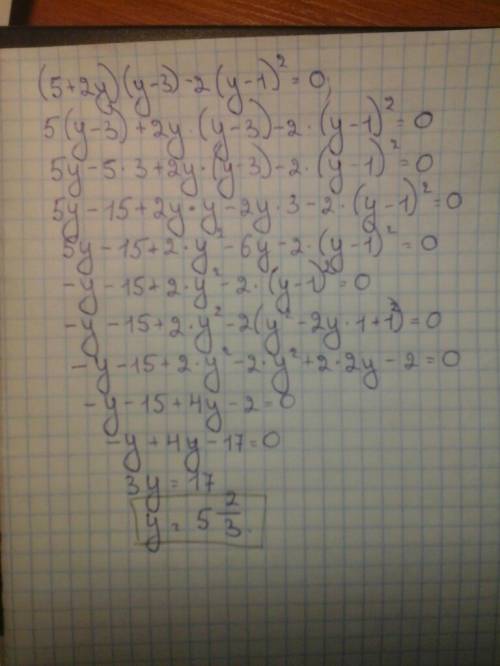 (5+2y)(y-3)-2(y-1)²=0;
5(y-3)+2y·(y-3)-2·(y-1)²=0
5y-5·3+2y·(y-3)-2·(y-1)²=0
5y-15+2y·y-2y·3-2·(y-1)²=0
5y-15+2·y²-6y-2·(y-1)²=0
-y-15+2·y²-2·(y-1)²=0
-y-15+2·y²-2(y²-2y·1+1²)=0
-y-15+2·y²-2·y²+2·2y-2=0
-y-15+4y-2=0
-y+4y-17=0
3y=17
y=5 2/3.